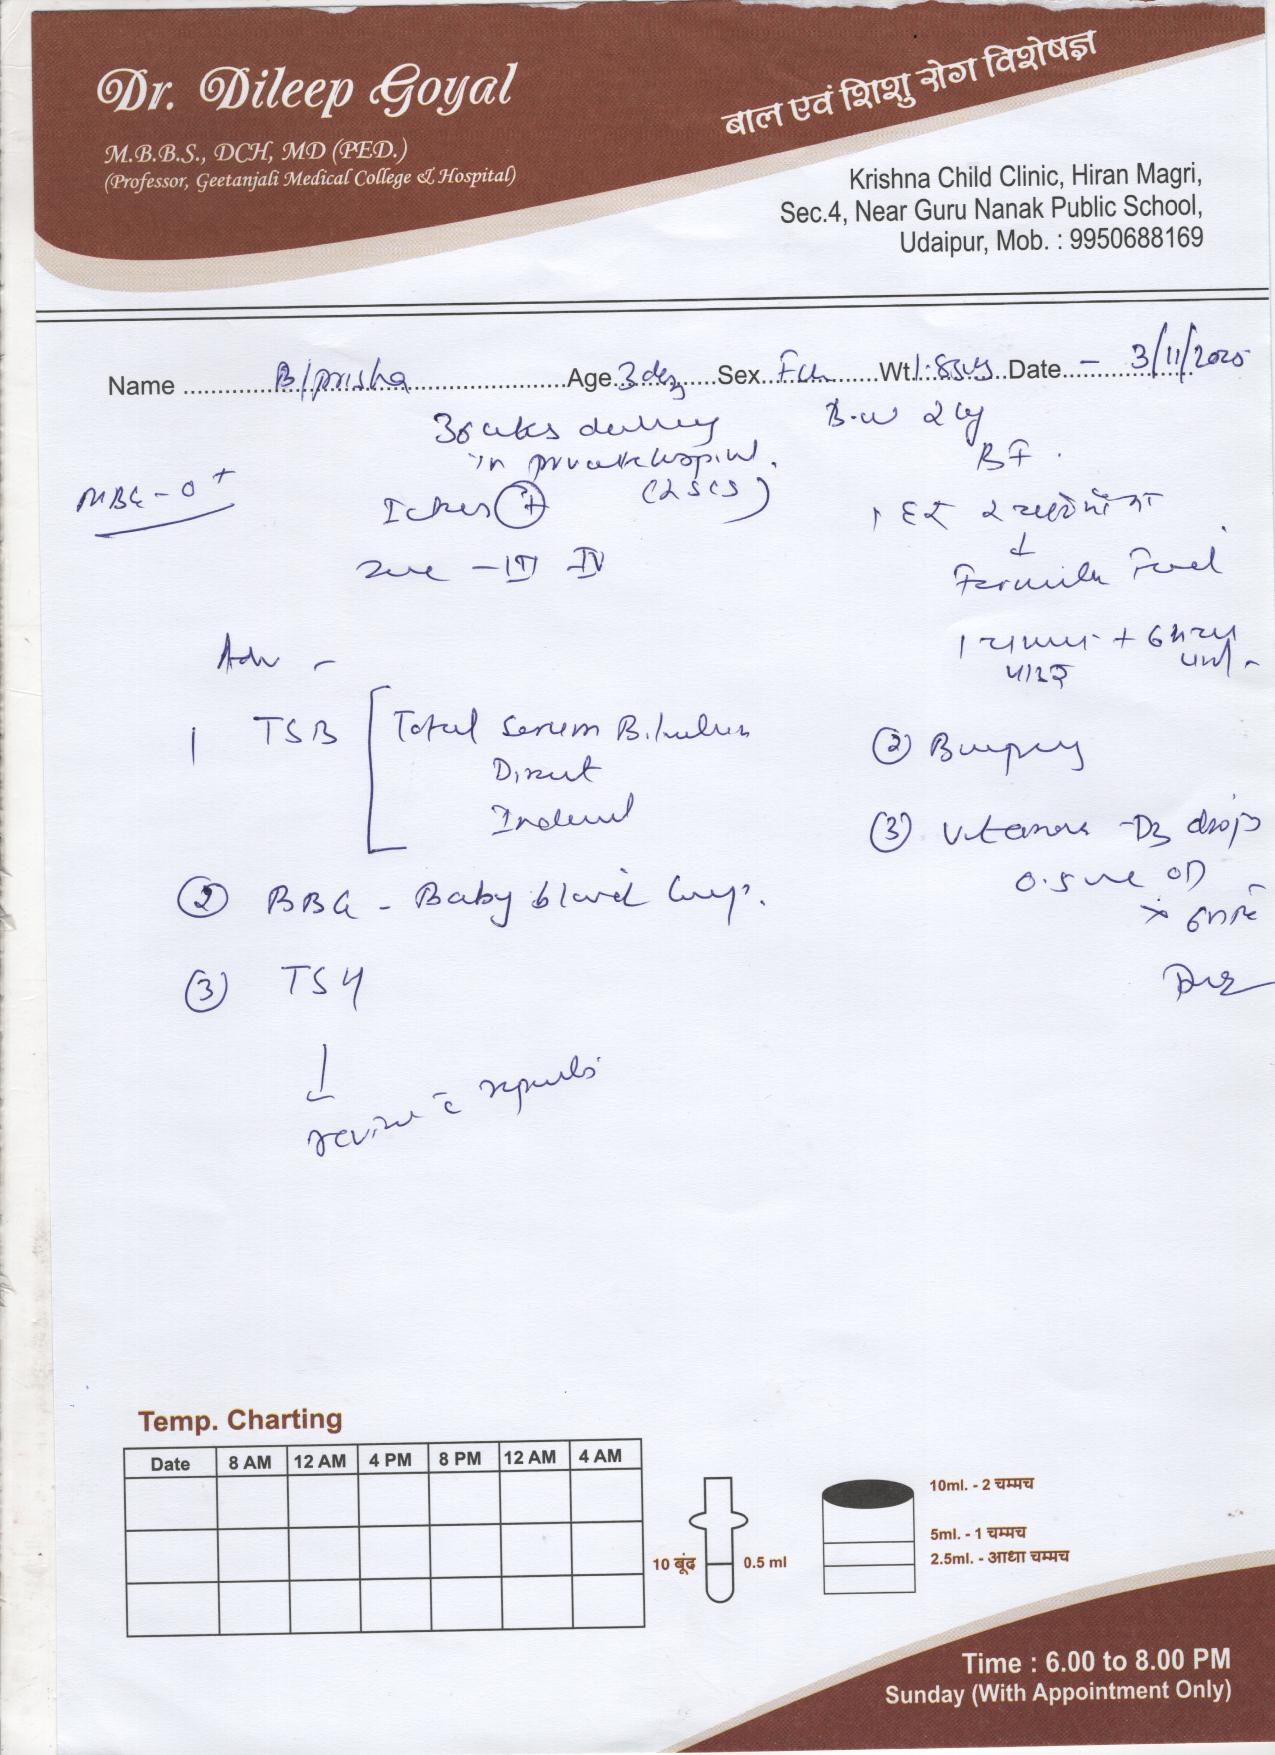 Dr. Dileep Goyal
M.B.B.S., DCH, MD (PED.)
(Professor, Geetanjali Medical College & Hospital)
बाल एवं शिशु रोग विशेषज्ञ
Krishna Child Clinic, Hiran Magri,
Sec.4, Near Guru Nanak Public School,
Udaipur, Mob. : 9950688169
Name B/prisha Age 3 Sex Wt Date - 3/11/2025
delivery
in private hospital.
(LSCS)
B.W 2 kg
BF.
MBG - O+
Icterus (+)
- III IV
1 हर 2
↓
Formula Feed
1 + 6
Adv -
1 TSB [ Total Serum Bilirubin
Direct
Indirect
(2) BBG - Baby blood Group.
(3) TSH
↓
review c̄ reports
(2) Burping
(3) Vitanova -D3 drops
0.5 ml OD
Temp. Charting
Date 8 AM 12 AM 4 PM 8 PM 12 AM 4 AM
10 बूंद 0.5 ml
10ml. - 2 चम्मच
5ml. - 1 चम्मच
2.5ml. - आधा चम्मच
Time : 6.00 to 8.00 PM
Sunday (With Appointment Only)